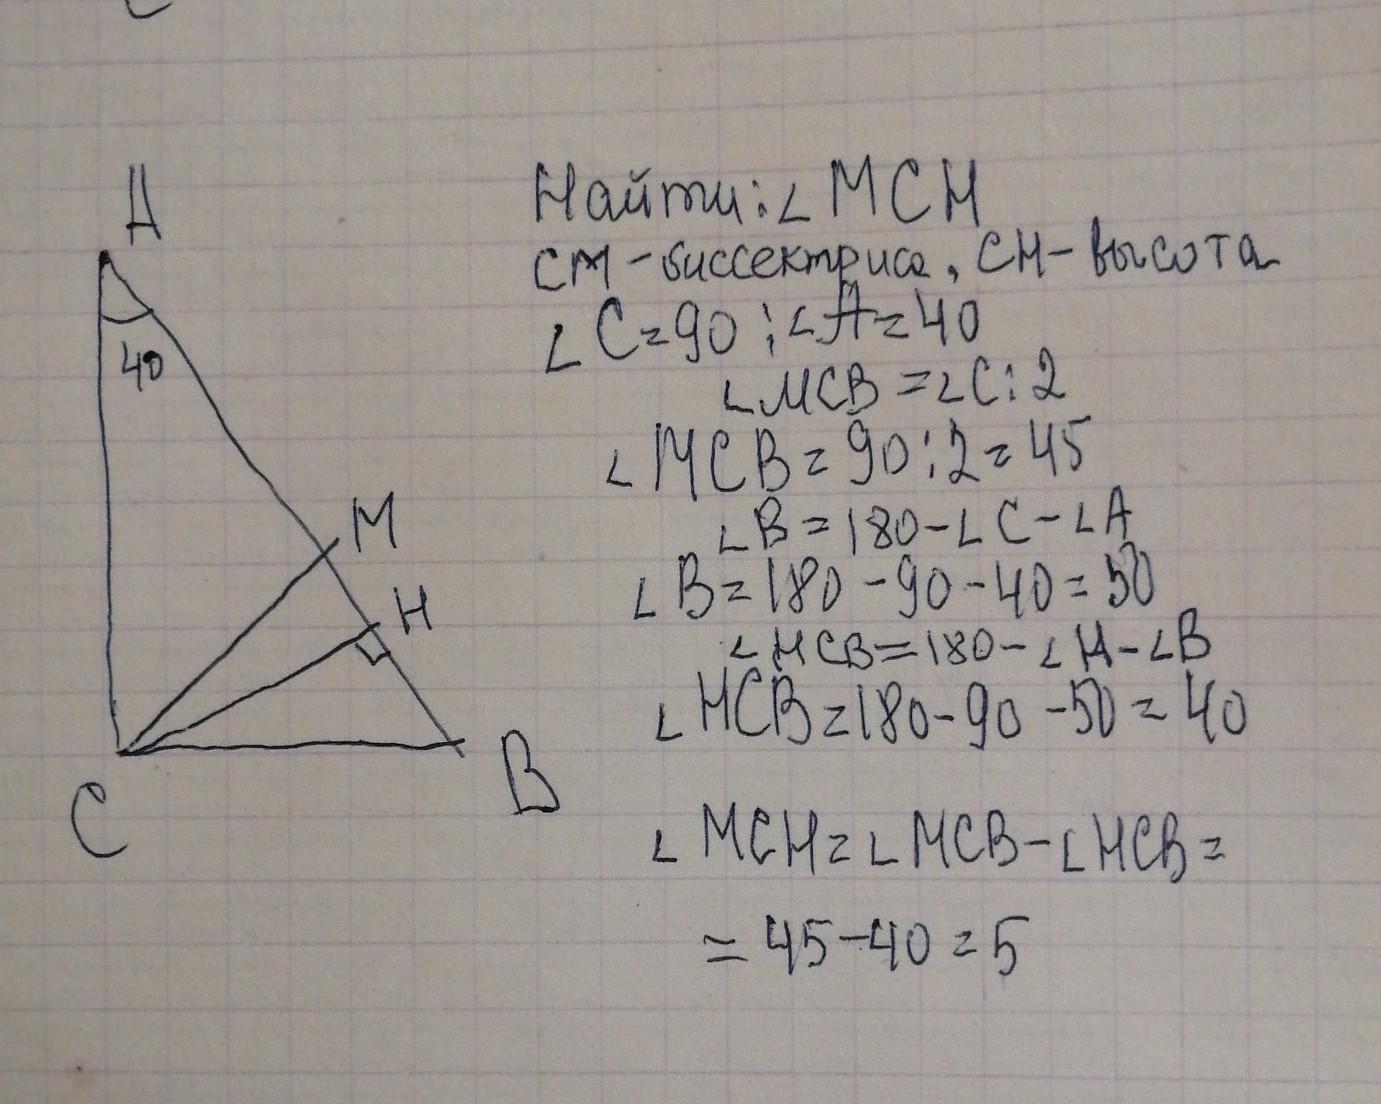 A
40
M
H
C
B
Найти: ∠MCH
CM - биссектриса, CH - высота
∠C=90 ; ∠A=40
∠MCB = ∠C:2
∠MCB = 90:2=45
∠B = 180-∠C-∠A
∠B=180-90-40=50
∠HCB=180-∠H-∠B
∠HCB=180-90-50=40
∠MCH=∠MCB-∠HCB=
=45-40=5